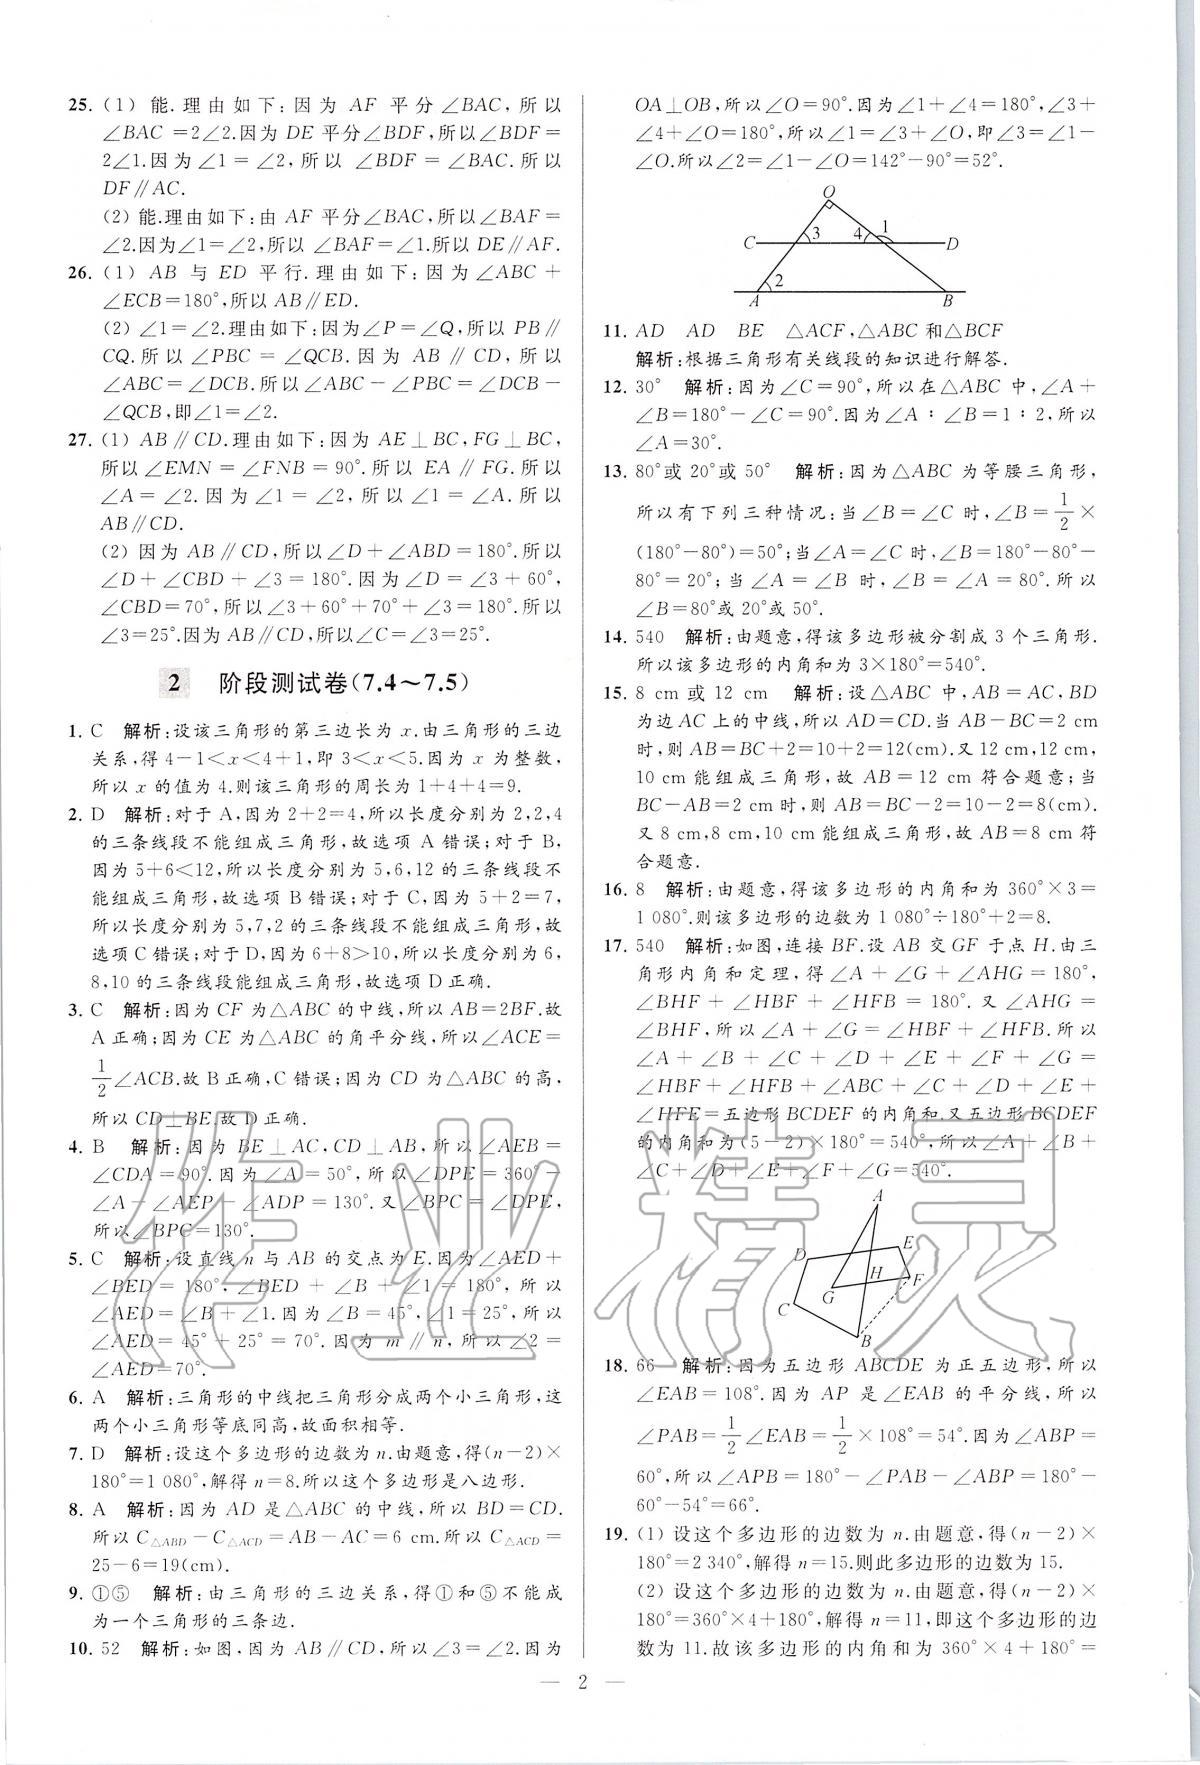 25. (1) 能.理由如下:因为 AF 平分∠BAC,所以
∠BAC=2∠2.因为 DE 平分∠BDF,所以∠BDF=
2∠1.因为∠1=∠2,所以 ∠BDF=∠BAC.所以
DF∥AC.
(2) 能.理由如下:由 AF 平分∠BAC,所以∠BAF=
∠2.因为∠1=∠2,所以 ∠BAF=∠1.所以 DE∥AF.
26. (1) AB 与 ED 平行.理由如下:因为 ∠ABC+
∠ECB=180°,所以 AB∥ED.
(2) ∠1=∠2.理由如下:因为∠P=∠Q,所以 PB∥
CQ.所以 ∠PBC=∠QCB.因为 AB∥CD,所以
∠ABC=∠DCB.所以∠ABC-∠PBC=∠DCB-
∠QCB,即∠1=∠2.
27. (1) AB∥CD.理由如下:因为 AE⊥BC,FG⊥BC,
所以∠EMN=∠FNB=90°.所以 EA∥FG.所以
∠A=∠2.因为∠1=∠2,所以∠1=∠A.所以
AB∥CD.
(2) 因为 AB∥CD,所以∠D+∠ABD=180°.所以
∠D+∠CBD+∠3=180°.因为∠D=∠3+60°,
∠CBD=70°,所以∠3+60°+70°+∠3=180°.所以
∠3=25°.因为 AB∥CD,所以∠C=∠3=25°.
2 阶段测试卷(7.4～7.5)
1. C 解析:设该三角形的第三边长为 x.由三角形的三边
关系,得 4-1<x<4+1,即 3<x<5.因为 x 为整数,
所以 x 的值为 4.则该三角形的周长为 1+4+4=9.
2. D 解析:对于 A,因为 2+2=4,所以长度分别为 2,2,4
的三条线段不能组成三角形,故选项 A 错误;对于 B,
因为 5+6<12,所以长度分别为 5,6,12 的三条线段不
能组成三角形,故选项 B 错误;对于 C,因为 5+2=7,
所以长度分别为 5,7,2 的三条线段不能组成三角形,故
选项 C 错误;对于 D,因为 6+8>10,所以长度分别为 6,
8,10 的三条线段能组成三角形,故选项 D 正确.
3. C 解析:因为 CF 为△ABC 的中线,所以 AB=2BF.故
A 正确;因为 CE 为△ABC 的角平分线,所以∠ACE=
1/2∠ACB.故 B 正确,C 错误;因为 CD 为△ABC 的高,
所以 CD⊥BE.故 D 正确.
4. B 解析:因为 BE⊥AC,CD⊥AB,所以∠AEB=
∠CDA=90°.因为∠A=50°,所以∠DPE=360°-
∠A-∠AEP-∠ADP=130°.又∠BPC=∠DPE,
所以∠BPC=130°.
5. C 解析:设直线 n 与 AB 的交点为 E.因为∠AED+
∠BED=180°,∠BED+∠B+∠1=180°,所以
∠AED=∠B+∠1.因为∠B=45°,∠1=25°,所以
∠AED=45°+25°=70°.因为 m∥n,所以∠2=
∠AED=70°.
6. A 解析:三角形的中线把三角形分成两个小三角形,这
两个小三角形等底同高,故面积相等.
7. D 解析:设这个多边形的边数为 n.由题意,得(n-2)×
180°=1 080°,解得 n=8.所以这个多边形是八边形.
8. A 解析:因为 AD 是△ABC 的中线,所以 BD=CD.
所以 C△ABD-C△ACD=AB-AC=6 cm.所以 C△ACD=
25-6=19(cm).
9. ①⑤ 解析:由三角形的三边关系,得①和⑤不能成
为一个三角形的三条边.
10. 52 解析:如图,因为 AB∥CD,所以∠3=∠2.因为
OA⊥OB,所以∠O=90°.因为∠1+∠4=180°,∠3+
∠4+∠O=180°,所以∠1=∠3+∠O,即∠3=∠1-
∠O.所以∠2=∠1-∠O=142°-90°=52°.
O
3 4 1
C D
2
A B
11. AD AD BE △ACF,△ABC和△BCF
解析:根据三角形有关线段的知识进行解答.
12. 30° 解析:因为∠C=90°,所以在△ABC 中,∠A+
∠B=180°-∠C=90°.因为∠A∶∠B=1∶2,所以
∠A=30°.
13. 80°或 20°或 50° 解析:因为△ABC 为等腰三角形,
所以有下列三种情况:当∠B=∠C 时,∠B=1/2×
(180°-80°)=50°;当∠A=∠C 时,∠B=180°-80°-
80°=20°;当∠A=∠B 时,∠B=∠A=80°.所以
∠B=80°或 20°或 50°.
14. 540 解析:由题意,得该多边形被分割成 3 个三角形.
所以该多边形的内角和为 3×180°=540°.
15. 8 cm 或 12 cm 解析:设△ABC 中,AB=AC,BD
为边 AC 上的中线,所以 AD=CD.当 AB-BC=2 cm
时,则 AB=BC+2=10+2=12(cm).又 12 cm,12 cm,
10 cm 能组成三角形,故 AB=12 cm 符合题意;当
BC-AB=2 cm 时,则 AB=BC-2=10-2=8(cm).
又 8 cm,8 cm,10 cm 能组成三角形,故 AB=8 cm 符
合题意.
16. 8 解析:由题意,得该多边形的内角和为 360°×3=
1 080°.则该多边形的边数为 1 080°÷180°+2=8.
17. 540 解析:如图,连接 BF.设 AB 交 GF 于点 H.由三
角形内角和定理,得∠A+∠G+∠AHG=180°,
∠BHF+∠HBF+∠HFB=180°.又∠AHG=
∠BHF,所以∠A+∠G=∠HBF+∠HFB.所以
∠A+∠B+∠C+∠D+∠E+∠F+∠G=
∠HBF+∠HFB+∠ABC+∠C+∠D+∠E+
∠HFE=五边形 BCDEF 的内角和.又五边形 BCDEF
的内角和为(5-2)×180°=540°,所以∠A+∠B+
∠C+∠D+∠E+∠F+∠G=540°.
A
D E
H F
G
C
B
18. 66 解析:因为五边形 ABCDE 为正五边形,所以
∠EAB=108°.因为 AP 是∠EAB 的平分线,所以
∠PAB=1/2∠EAB=1/2×108°=54°.因为∠ABP=
60°,所以∠APB=180°-∠PAB-∠ABP=180°-
60°-54°=66°.
19. (1) 设这个多边形的边数为 n.由题意,得(n-2)×
180°=2 340°,解得 n=15.则此多边形的边数为 15.
(2) 设这个多边形的边数为 n.由题意,得(n-2)×
180°=360°×4+180°,解得 n=11,即这个多边形的边
数为 11.故该多边形的内角和为 360°×4+180°=
— 2 —
作业精灵